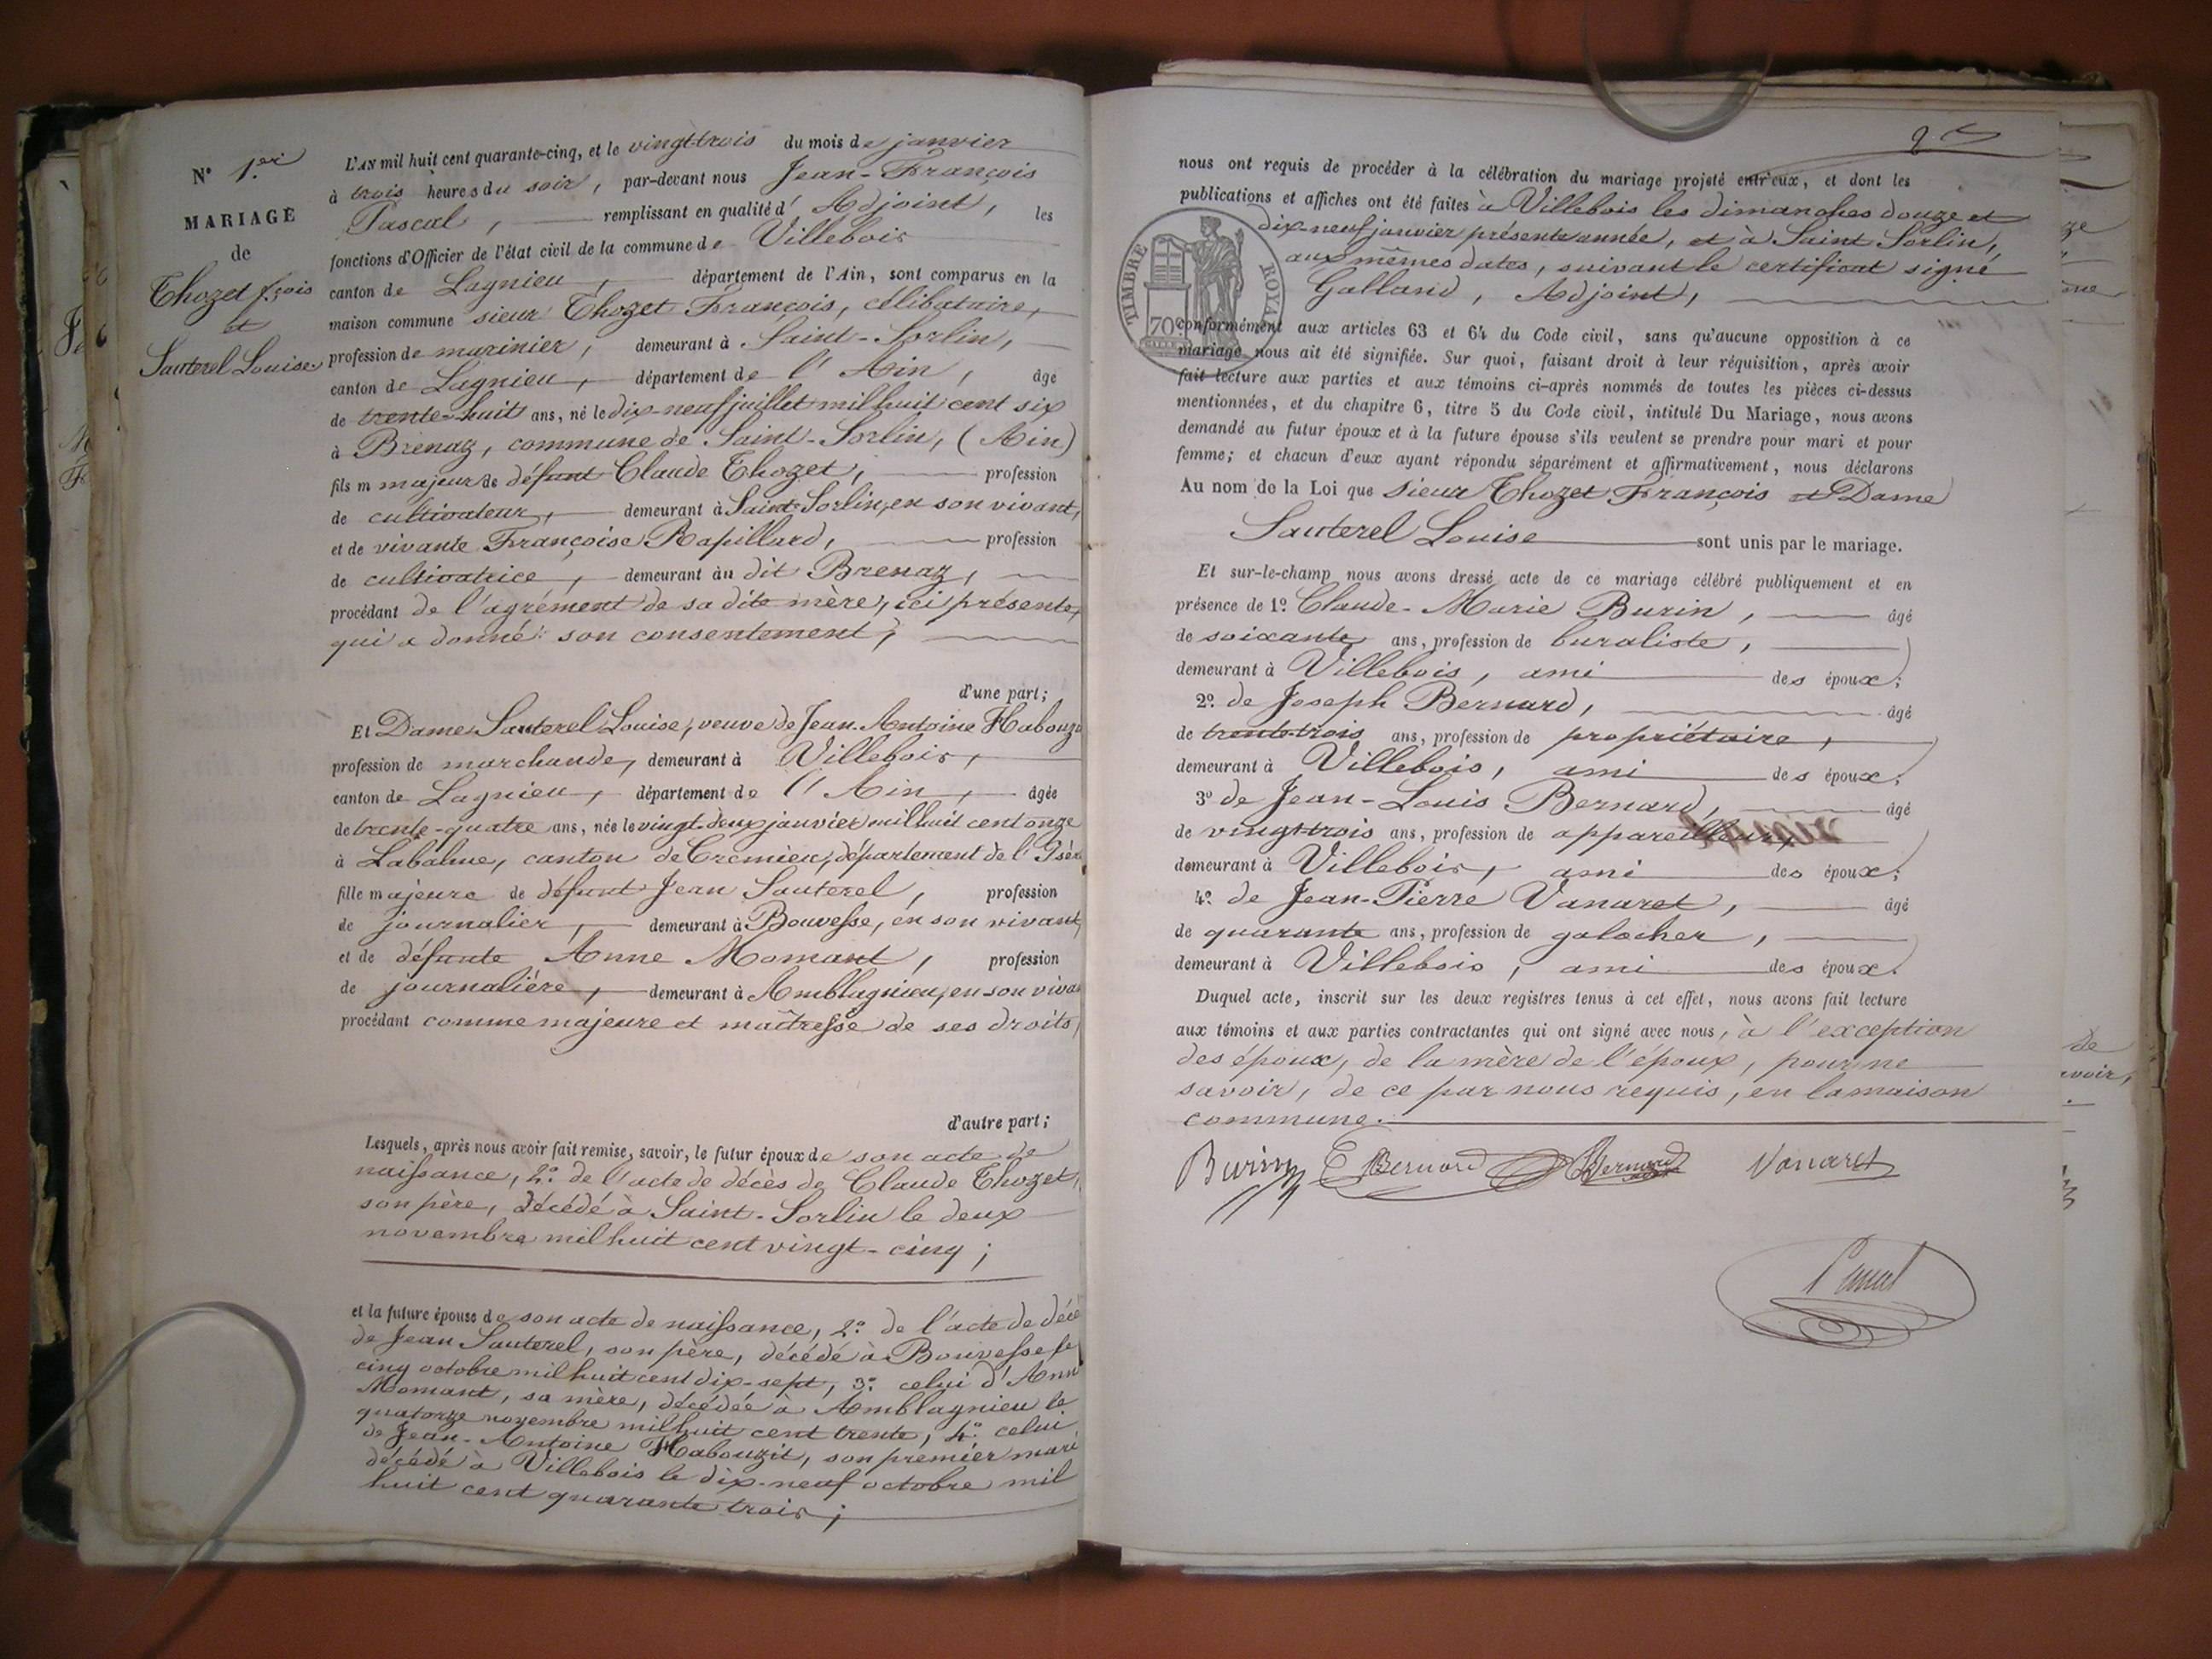 N° 1.er
MARIAGE
de
Thozet f.çois
et
Sauterel Louise
L'AN mil huit cent quarante-cinq, et le vingt-trois du mois de janvier
à trois heures du soir, par-devant nous Jean-François
Pascal, remplissant en qualité d'Adjoint, les
fonctions d'Officier de l'état civil de la commune de Villebois
canton de Lagnieu, département de l'Ain, sont comparus en la
maison commune sieur Thozet François, célibataire,
profession de marinier, demeurant à Saint-Sorlin,
canton de Lagnieu, département de l'Ain, âgé
de trente-huit ans, né le dix-neuf juillet mil huit cent six
à Brenaz, commune de Saint-Sorlin, (Ain)
fils m majeur de défunt Claude Thozet, profession
de cultivateur, demeurant à Saint-Sorlin, en son vivant,
et de vivante Françoise Rapillard, profession
de cultivatrice, demeurant au dit Brenaz,
procédant de l'agrément de sa dite mère, ici présente,
qui a donné son consentement,
d'une part;
Et Dame Sauterel Louise, veuve de Jean-Antoine Habouz
profession de marchande, demeurant à Villebois,
canton de Lagnieu, département de l'Ain, âgée
de trente-quatre ans, née le vingt-deux janvier mil huit cent onze
à Labalme, canton de Crémieu, département de l'Isère
fille majeure de défunt Jean Sauterel, profession
de journalier, demeurant à Bouvesse, en son vivant,
et de défunte Anne Momant, profession
de journalière, demeurant à Amblagnieu, en son viva
procédant comme majeure et maîtresse de ses droits,
d'autre part;
Lesquels, après nous avoir fait remise, savoir, le futur époux de son acte de
naissance, 2° de l'acte de décès de Claude Thozet,
son père, décédé à Saint-Sorlin le deux
novembre mil huit cent vingt-cinq;
et la future épouse de son acte de naissance, 2° de l'acte de décè
de Jean Sauterel, son père, décédé à Bouvesse le
cinq octobre mil huit cent dix-sept, 3° celui d'Ann
Momant, sa mère, décédée à Amblagnieu le
quatorze novembre mil huit cent trente, 4° celui
de Jean-Antoine Habouzit, son premier mari
décédé à Villebois le dix-neuf octobre mil
huit cent quarante trois;
nous ont requis de procéder à la célébration du mariage projeté entr'eux, et dont les
publications et affiches ont été faites à Villebois les dimanches douze et
dix-neuf janvier présente année, et à Saint Sorlin,
aux mêmes dates, suivant le certificat signé
Galland, Adjoint,
TIMBRE ROYAL
70
conformément aux articles 63 et 64 du Code civil, sans qu'aucune opposition à ce
mariage nous ait été signifiée. Sur quoi, faisant droit à leur réquisition, après avoir
fait lecture aux parties et aux témoins ci-après nommés de toutes les pièces ci-dessus
mentionnées, et du chapitre 6, titre 5 du Code civil, intitulé Du Mariage, nous avons
demandé au futur époux et à la future épouse s'ils veulent se prendre pour mari et pour
femme; et chacun d'eux ayant répondu séparément et affirmativement, nous déclarons
Au nom de la Loi que sieur Thozet François et Dame
Sauterel Louise sont unis par le mariage.
Et sur-le-champ nous avons dressé acte de ce mariage célébré publiquement et en
présence de 1° Claude-Marie Burin, âgé
de soixante ans, profession de buraliste,
demeurant à Villebois, ami des époux;
2° de Joseph Bernard, âgé
de trente-trois ans, profession de propriétaire,
demeurant à Villebois, ami des époux;
3° de Jean-Louis Bernard, âgé
de vingt-trois ans, profession de appareilleur,
demeurant à Villebois, ami des époux;
4° de Jean-Pierre Vanaret, âgé
de quarante ans, profession de galocher,
demeurant à Villebois, ami des époux.
Duquel acte, inscrit sur les deux registres tenus à cet effet, nous avons fait lecture
aux témoins et aux parties contractantes qui ont signé avec nous, à l'exception
des époux, de la mère de l'époux, pour ne
savoir, de ce par nous requis, en la maison
commune.
Burin Bernard Bernard Vanaret
Pascal